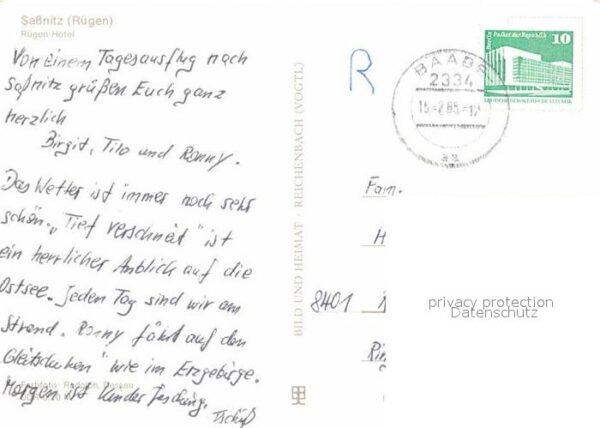 Saßnitz (Rügen)
Rügen-Hotel
Von einem Tagesausflug nach
Saßnitz grüßen Euch ganz
herzlich
Birgit, Tilo und Ronny.
Das Wetter ist immer noch sehr
schön. „Tief verschneit" ist
ein herrlicher Anblick auf die
Ostsee. Jeden Tag sind wir am
Strand. Ronny fährt auf den
„Gleitschuhen" wie im Erzgebirge.
Morgen ist Kinderfasching. Tschüß
Farbfoto: Rudolph, Dessau
BILD UND HEIMAT · REICHENBACH (VOGTL)
R
BAABE
2334
15.-2.85.-12
aa
Berlin Palast der Republik
10
Fam.
H
8401
Rin
privacy protection
Datenschutz